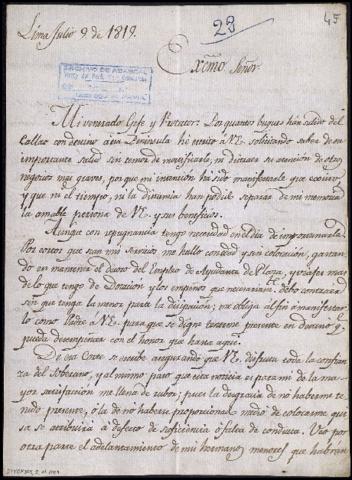 45
28
Lima Julio 9 de 1819.
Exmo Señor.
ARCHIVO DE ABASCAL
Mi venerado Gefe y Protector: Los quantos buques han salido del
Callao con destino á esa Peninsula hé escrito á VE. solicitando saber de su
importante salud sin temor de mortificarle, ni distraer su atencion de otros
negocios mas graves, porque mi intencion há sido manifestarle que existo,
y que ni el tiempo, ni la distancia han podido separar de mi memoria
la amable persona de VE. y sus beneficios.
Aunque con repugnancia tengo necesidad en el dia de importunarle.
Por cortos que sean mis servicios me hallo con edad y sin colocacion, gastan-
do en mantener el decoro del Empleo de Ayudante de Plaza, y crecer mas
de lo que tengo de Dotacion y los empeños que necesariamte. debo contraer
sin que tenga la menor parte la disipacion; me obliga al fin á manifestar-
lo como Padre á VE. para que se digne tenerme presente en destino q.
pueda desempeñar con el honor que hasta aqui.
De esa Corte se escribe asegurando que VE. disfruta toda la confian-
za del Soberano, y al mismo paso que esta noticia es para mi de la ma-
yor satisfaccion me llena de rubor; pues la desgracia de no haberme te-
nido presente, ó la de no haberse proporcionado medio de colocarme, qui-
sa se atribuirá á defecto de suficiencia ó falta de conducta. Veo por
otra parte el adelantamiento de mis hermanos menores que habrán